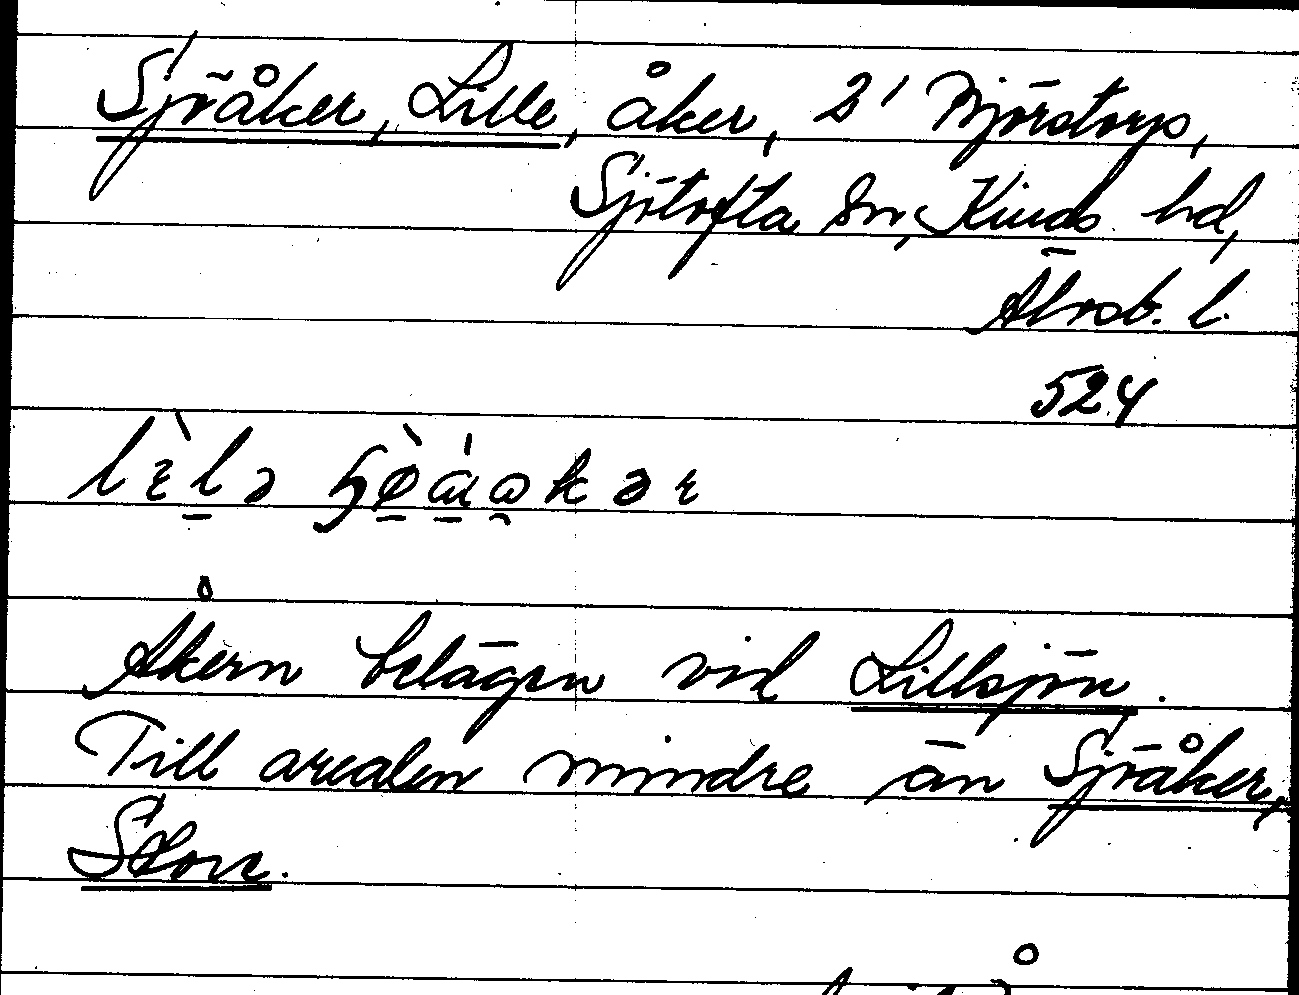 Sjöåker, Lille, åker, 2' Björstorp,
Sjötofta sn, Kinds hd,
Älvsb. l.
524
Åkern belägen vid Lillsjön.
Till arealen mindre än Sjöåker,
Store.